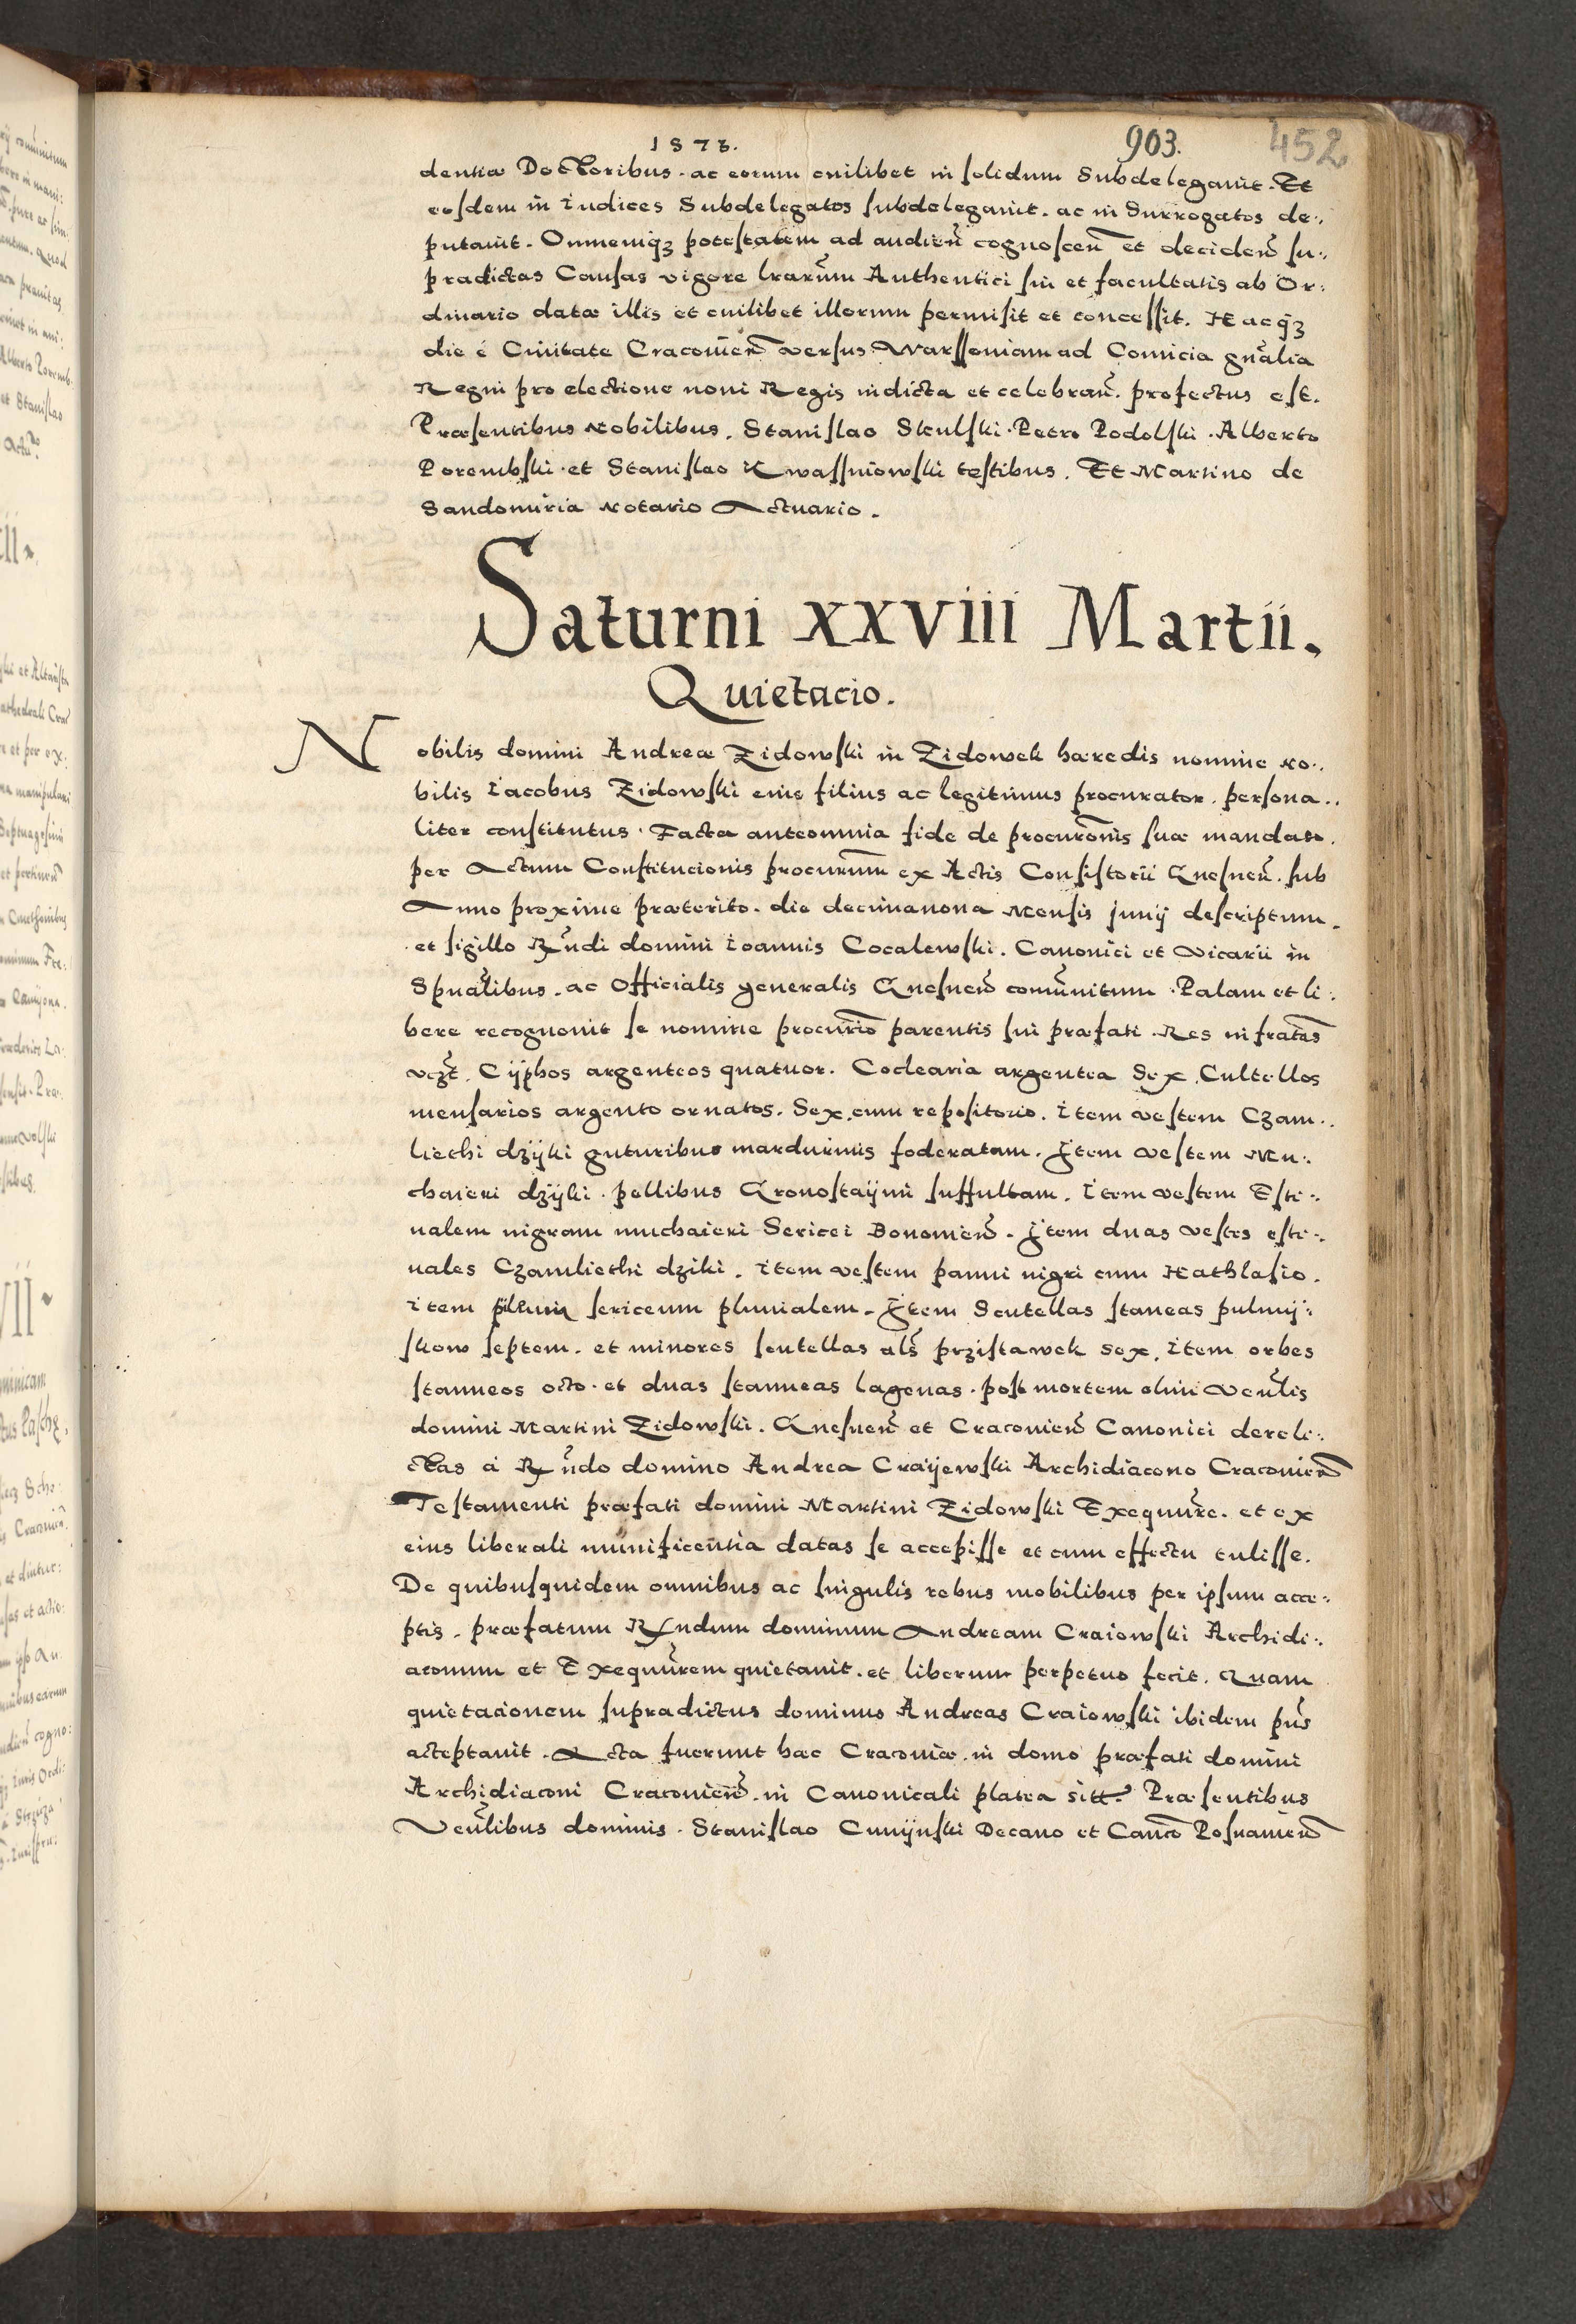 1573.
903.
452
dentiæ Doctoribus. ac eorum cuilibet in solidum Subdelegauit. Et
eosdem in Iudices Subdelegatos subdelegauit. ac in Surrogatos de:,
putauit. Omnemq₃ potestatem ad audieñ cognosceñ et decideñ su:,
pradictas Causas vigore lrarum Authentici sui et facultatis ab Or:
dinario datæ illis et cuilibet illorum permisit et concessit. Hacq₃
die é Ciuitate Cracouieñ versus Warssouiam ad Comicia gnalia
Regni pro electione noui Regis indicta et celebrañ. profectus est.
Præsentibus Nobilibus. Stanislao Skulski. Petro Podolski. Alberto
Porembski. et Stanislao Kwassniowski testibus. Et Martino de
Sandomiria Notario Actuario.
Saturni xxviii Martii.
Quietacio.
Nobilis domini Andreæ Zidowski in Zidowek hæredis nomine No:,
bilis Iacobus Zidowski eius filius ac legitimus procurator. persona:,
liter constitutus. Facta anteomnia fide de procurõnis suæ mandato.
per Actum Constitucionis procurum̃ ex Actis Consistorii Gnesneñ. sub
Anno proxime præterito. die decimanona Mensis Junij descriptum.
et sigillo Rñdi domini Ioannis Cocalewski. Canonici et Vicarii in
Spũalibus. ac Officialis generalis Gnesneñ comũnitum. Palam et li:
bere recognouit se nomine procurio parentis sui præfati. Res infratas
vczt. Cyphos argenteos quatuor. Coclearia argentea Sex. Cultellos
mensarios argento ornatos. Sex. cum repositorio. Item vestem Czam:,
liethi dzÿki guturibus mardurinis foderatam. Item vestem Mu:,
chaieri dzÿki. pellibus Gronostaÿmi suffultam. Item vestem Esti:,
ualem nigram muchaieri Sericei Bononieñ. Item duas vestes esti:,
uales Czamliethi dziki. Item vestem panni nigri cum Hathlasio.
Item pileum sericeum pluuialem. Item Scutellas staneas pulmÿ:,
skow septem. et minores scutellas als przistawek sex. Item orbes
stanneos octo. et duas stanneas lagenas. post mortem olim Veñlis
domini Martini Zidowski. Gnesneñ et Cracouieñ Canonici dereli:,
ctas á Rñdo domino Andrea Craÿewski Archidiacono Cracouieñ
Testamenti præfati domini Martini Zidowski Exequũre. et ex
eius liberali munificentia datas se accepisse et cum effectu tulisse.
De quibusquidem omnibus ac singulis rebus mobilibus per ipsum acce:,
ptis. præfatum Rñdum dominum Andream Craiowski Archidi:,
aconum et Exequũrem quietauit. et liberum perpetuo fecit. Quam
quietacionem supradictus dominus Andreas Craiowski ibidem pñs
acceptauit. Acta fuerunt hæc Cracouiæ. in domo præfati domini
Archidiaconi Cracouieñ. in Canonicali platea sitt. Præsentibus
Veñlibus dominis. Stanislao Cunÿnski Decano et Canco Posnanieñ